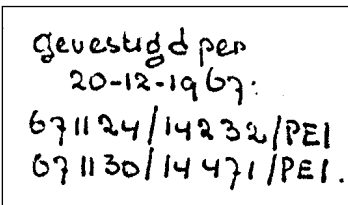 gevestigd per
20-12-1967:
671124/14232/PEI
671130/14471/PEI.